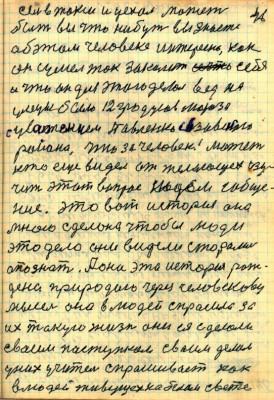 сел в такси и уехал может
быть вы что нибуть вы знаете
абэтом человека интересно, как
он сумел так закалит себя
и что он для этого делал вед на
улице было 12 градусов мороза
суважением Павленко
района, что за человек! может
кто еще видел от желающих изу
чит этот вопрос ждем сообще
ние. это вот история она
много сделона чтобы люди
это дело они видели старали
опознать. Пони эта история рож
дена природаго через человескову
мысел она влюдей спрасила за
их такую жизн они ся сделали
своим паступком своим делам
уних учител спрашивает как
влюдей живущех на белам свете